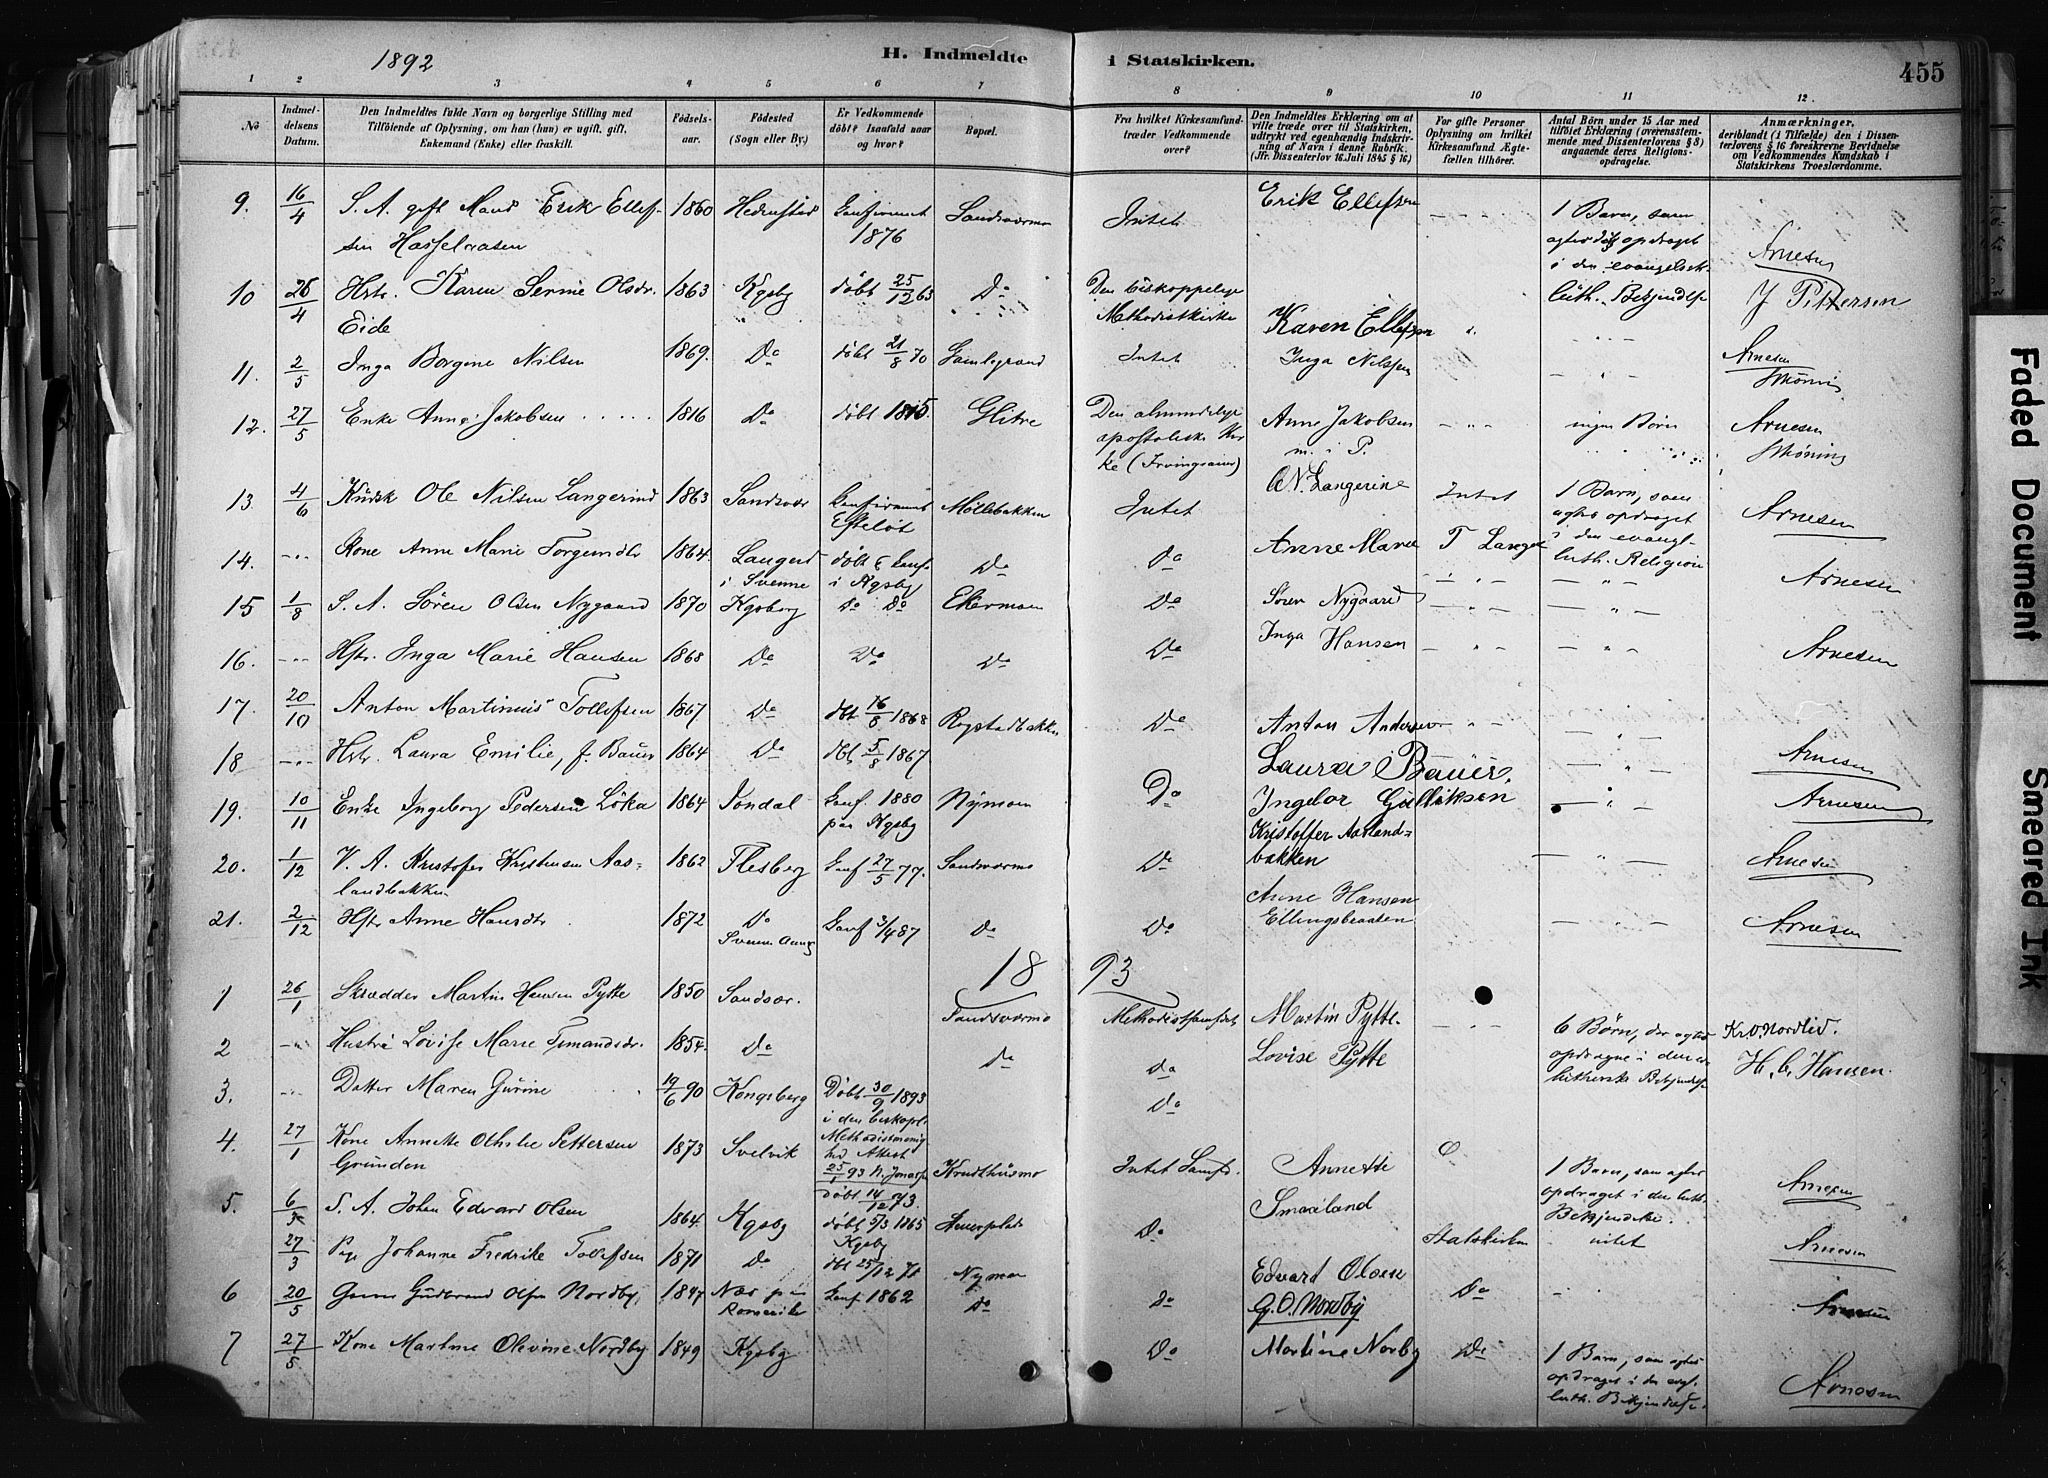 1892
H. Indmeldte i Statskirken.
455
1 2 3 4 5 6 7 8 9 10 11 12
No
Indmel-
delsens
Datum.
Den Indmeldtes fulde Navn og borgerlige Stilling med
Tilföiende af Oplysning, om han (hun) er ugift, gift,
Enkemand (Enke) eller fraskilt.
Födsels-
aar.
Födested
(Sogn eller By.)
Er Vedkommende
döbt? Isaafald naar
og hvor?
Bopæl.
Fra hvilket Kirkesamfund-
træder Vedkommende
over?
Den Indmeldtes Erklæring om at
ville træde over til Statskirken,
udtrykt ved egenhændig Indskriv-
ning af Navn i denne Rubrik.
(Jfr. Dissenterlov 16 Juli 1845 § 16)
For gifte Personer
Oplysning om hvilket
Kirkesamfund Ægte-
fællen tilhörer.
Antal Börn under 15 Aar med
tilföiet Erklæring (overensstem-
mende med Dissenterlovens § 8)
angaaende deres Religions-
opdragelse.
Anmærkninger,
deriblandt (i Tilfælde) den i Dissen-
terlovens § 16 foreskrevne Bevidnelse
om Vedkommendes Kundskab i
Statskirkens Troeslærdomme.
9. 16/4 S. A. gift Mand Erik Ellef- 1860 Confirmeret Intet Erik Ellefsen 1 Barn, som
sen 1876 opdraget
i den evangelisk Arnesen
10 26/4 Hstr. Karen Serine Olsdr. 1863 Kgsby døbt 25/12 63 Do Den biskoppelige luth. Bekjendelse J Pettersen
Eide Methodistkirke Karen Ellefsen
11. 2/5 Inga Borgine Nilsen 1869. Do døbt 21/8 70 Gamlegrand Intet Inga Nilssen Arnesen
12. 27/5 Enke Anne Jakobsen 1816 Do døbt 1815. Glitre Den almindelige Anne Jakobsen ingen Børn Arnesen
apostoliske Kir m. i P.
ke (Irvingianer)
13. 4/6 Ole Nilsen Langerind 1863 Sandsvær Confirmeret Møllebakken Intet O N. Langerine Intet 1 Barn, som Arnesen
Efteløt agtes opdraget
14. Kone Anne Marie Torgersdtr 1864. døbt & conf. Do Do Anne Marie T i den evangl.
i Svenne i Kgsby luth. Religion Arnesen
15 1/8 S. A. Sören Olsen Nygaard 1870 Kgsberg Do Do Ekermoen Do Sören Nygaard
16. Hstr. Inga Marie Hansen 1868 Do Do Do Do Inga Hansen Arnesen
17. 20/10 Anton Martinius Tollefsen 1867 Do dbt 16/8 1868 Rogstadbakken Do Anton Andersen
18 Hstr. Laura Emilie, f. Bauer 1864 Do dbt 5/8 1867 Laura Bauer. Arnesen
19. 10/11 Enke Ingeborg Pedersen Löka 1864 Jondal Conf. 1880 Nymoen Do Ingebor Gulliksen Arnesen
paa Kgsby Kristoffer Aasland-
20. 1/12 V. A. Kristofer Kristensen Aas- 1862 Flesberg Conf 27/5 77. Sandsværmo Do bakken Arnesen
landbakken Anne Hansen
21. 2/12 Hstr Anne Hansdtr 1872 Do Conf 3/4 87 Do Do Ellingsbraaten Arnesen
1893
1 26/1 Skrædder Martin Hansen Pytte 1850 Sandsvær. Sandsværmo Methodistsamfdet Martin Pytte 6 Børn, der agtes Kr. O. Nordlid.
2 Hustru Lovise Marie 1854. Do Do Do Lovise Pytte opdragne i den ev. H. C. Hansen.
lutherske Bekjendelse
3. Datter Maren Gurine 19/6 90 Kongsberg Døbt 30/9 1893 Do
i den biskopl.
4. 27/1 Kone Annette Othilie Pettersen 1873 Svelvik Methodistmenig Annette
Grunden hed Attest Krudthusmo Intet Samfd. 1 Barn, som agtes Arnesen
25/1 93
døbt 14/12 73. Smaaland opdraget i den luth.
5. 6/3 S. A. Johan Edvard Olsen 1864. Kgsby døbt 5/3 1865 Do Bekjendelse.
Kgsby Statskirken intet Arnesen
27/3 Pige Johanne Fredrike Tollefsen 1871 Do dbt 25/12 71 Nymoen Edvart Olsen
6 20/5 Gudbrand Olsen Nordby, 1847 Næs paa Conf. 1862 Do Do G. O. Nordby Do Arnesen
Romerike
7 27/5 Kone Martine Olevine Nordby 1849 Kgsby Do Martine Norby Do 1 Barn, som agtes
opdraget i den evgl. Arnesen
luth. Bekjendelse.
Faded Document
Smeared Ink